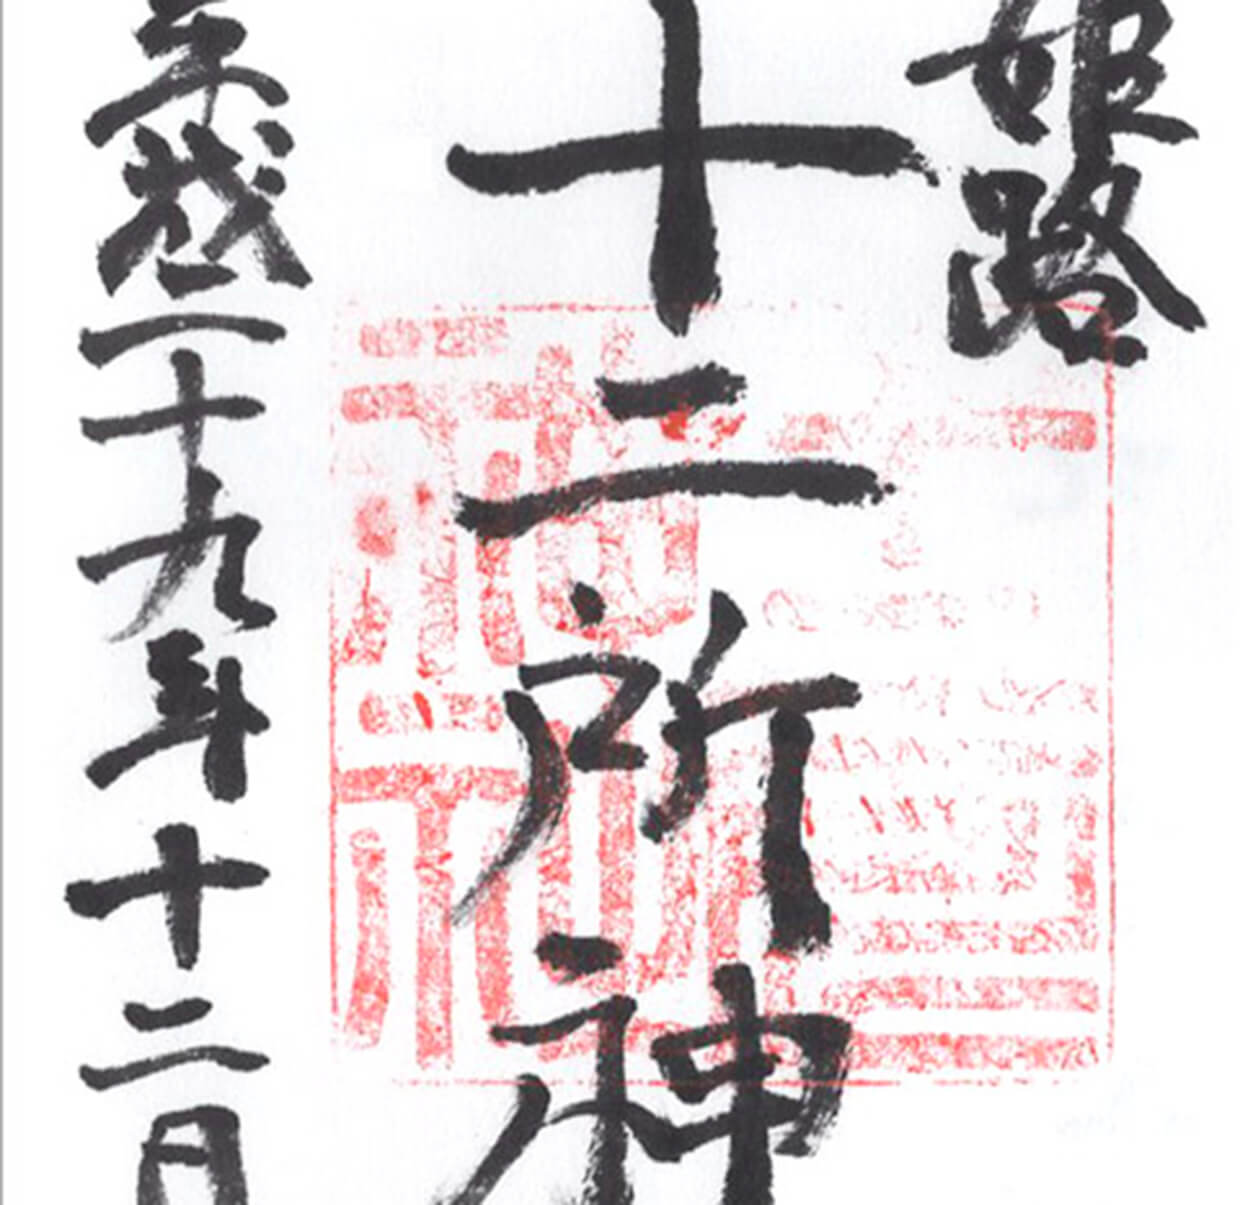 姫路
十二所神
平成二十九年十二月